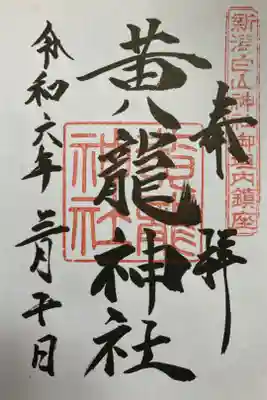 新潟白山神社御境内鎮座
奉拝
黄龍神社
黄龍神社
令和六年三月二十日